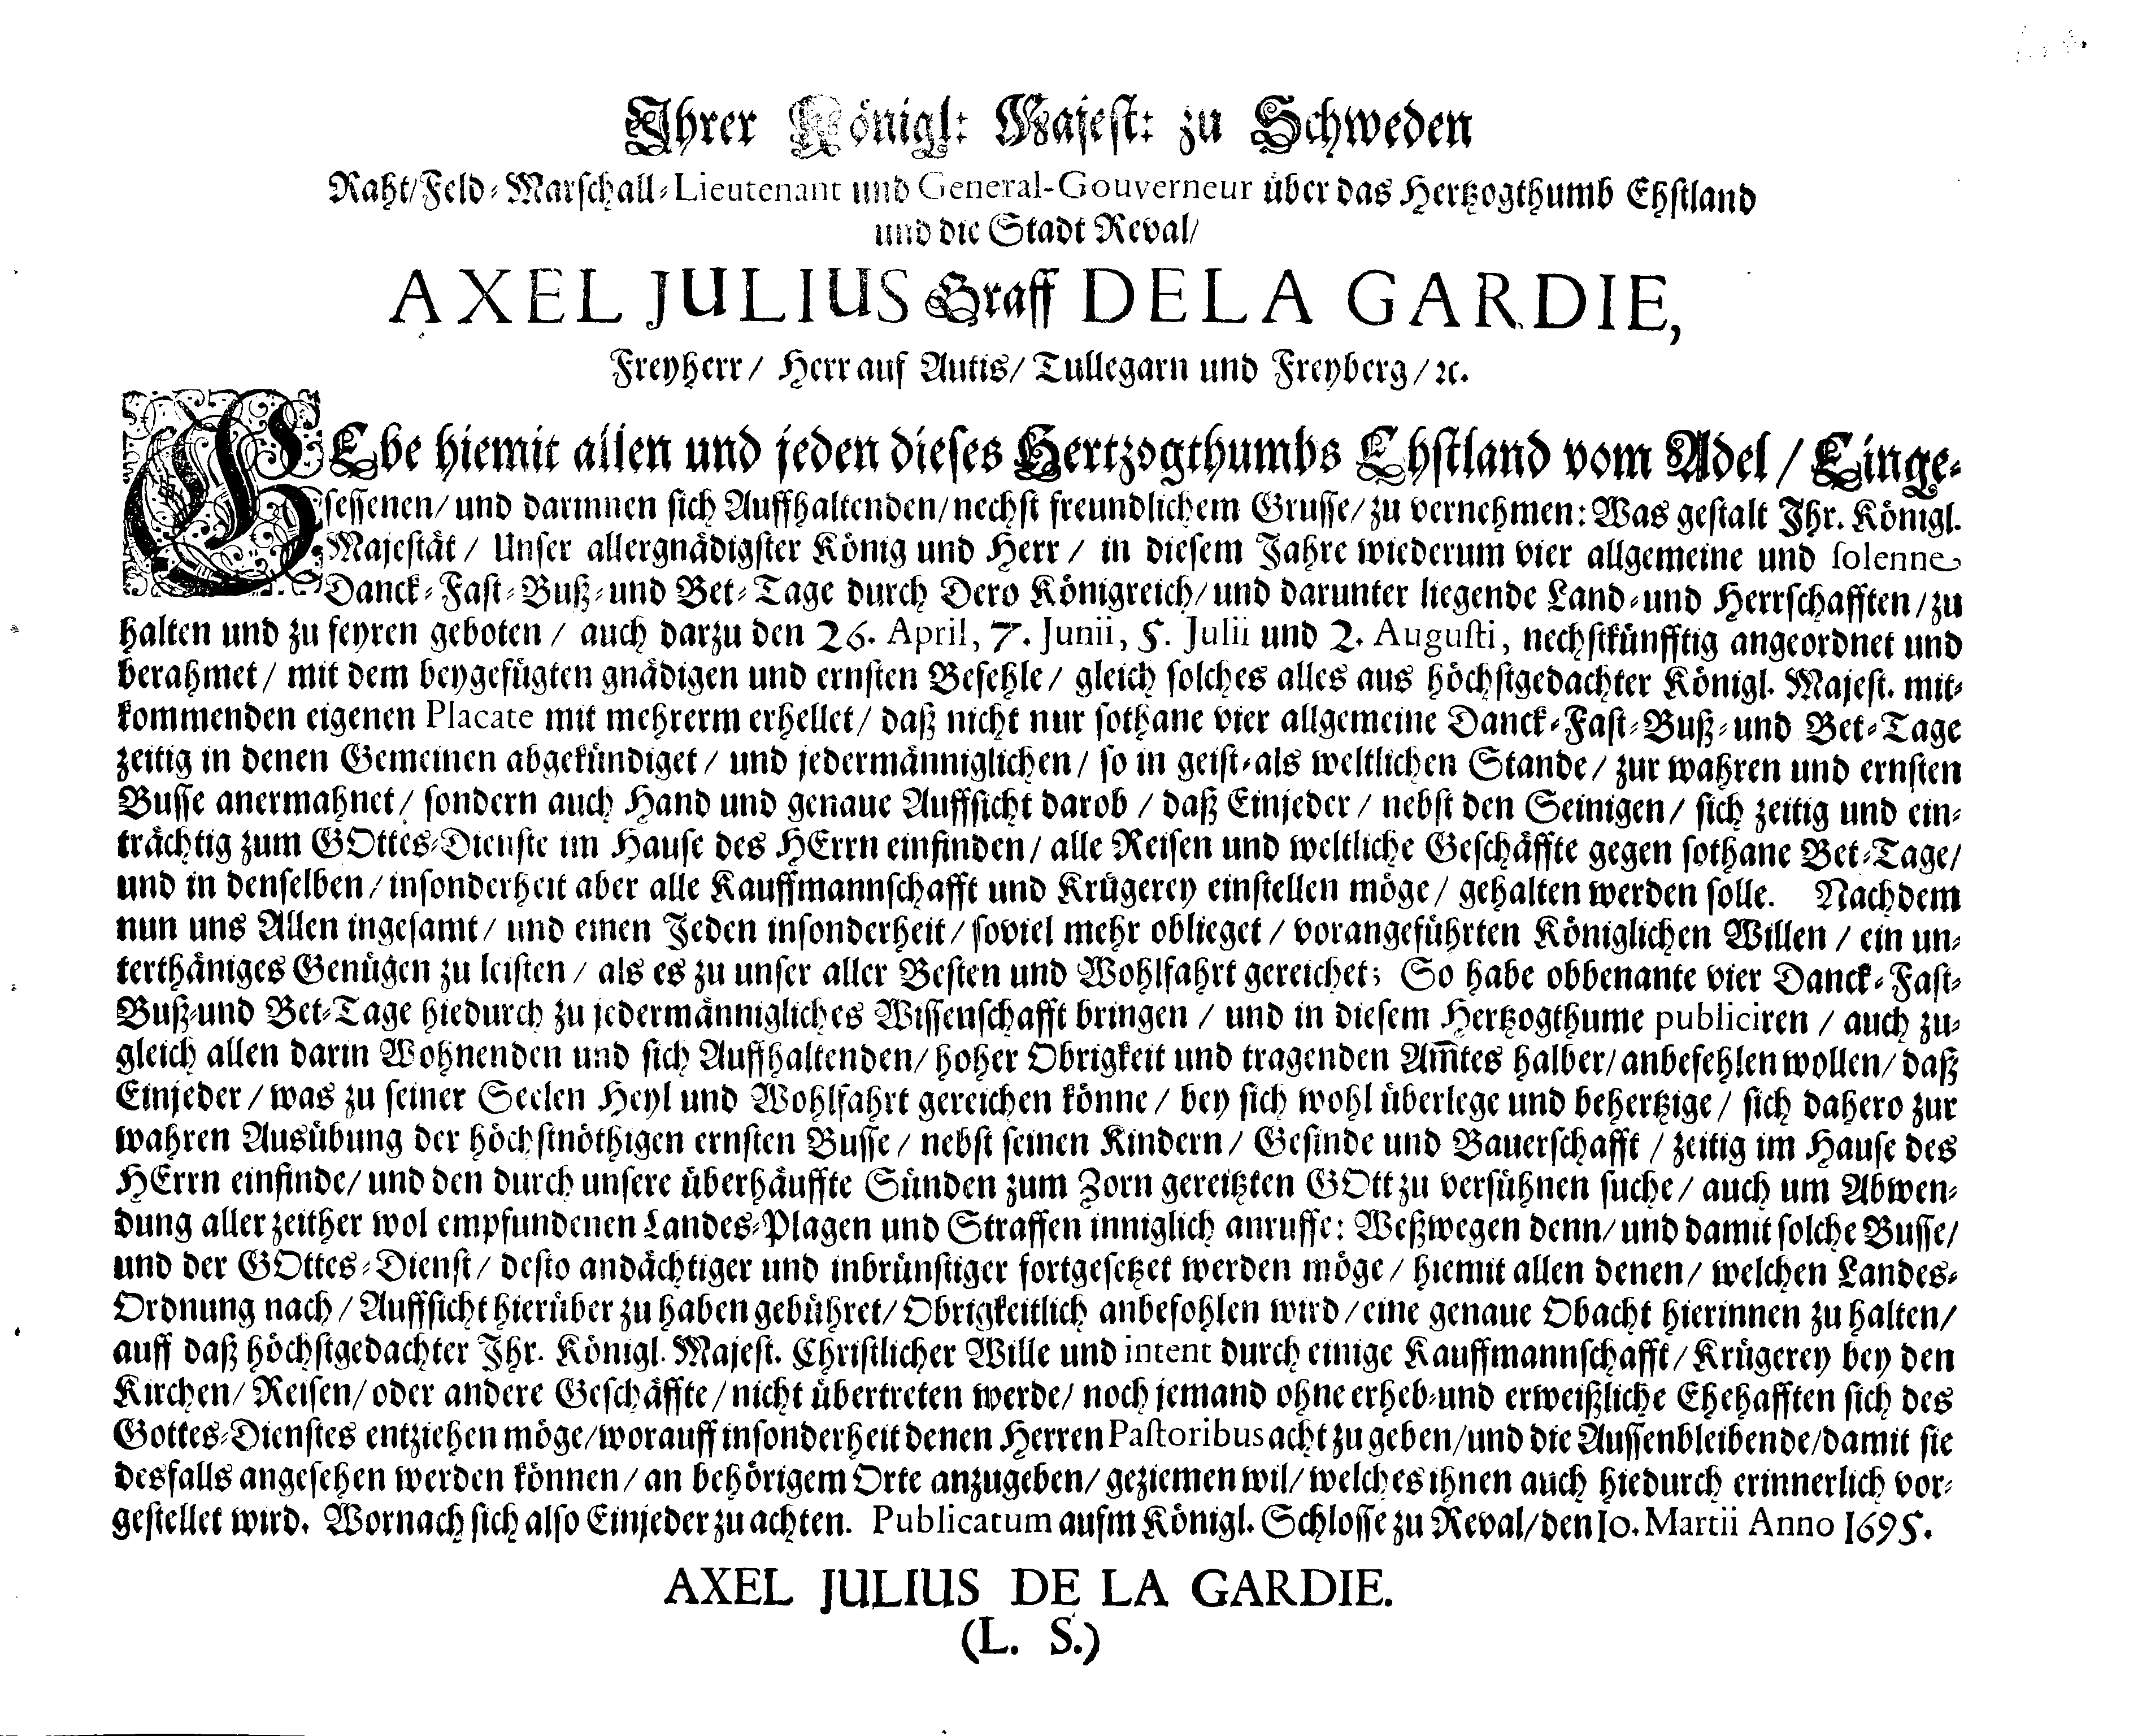 Ihrer Königl: Majest: zu Schweden
Raht/Feld-Marschall-Lieutenant und General-Gouverneur über das Hertzogthumb Ehstland
und die Stadt Reval/
AXEL JULIUS Graff DE LA GARDIE,
Freyherr/ Herr auf Autis/ Tullegarn und Freyberg/ ꝛc.
GEbe hiemit allen und jeden dieses Hertzogthumbs Ehstland vom Adel / Einge-
sessenen/ und darinnen sich Auffhaltenden/ nechst freundlichem Grusse/ zu vernehmen: Was gestalt Ihr. Königl.
Majestät / Unser allergnädigster König und Herr / in diesem Jahre wiederum vier allgemeine und solenne
Danck-Fast-Buß-und Bet-Tage durch Dero Königreich/ und darunter liegende Land-und Herrschafften/ zu
halten und zu feyren geboten / auch darzu den 26. April, 7. Junii, 5. Julii und 2. Augusti, nechstkünfftig angeordnet und
berahmet/ mit dem beygefügten gnädigen und ernsten Befehle/ gleich solches alles aus höchstgedachter Königl. Majest. mit-
kommenden eigenen Placate mit mehrerm erhellet/ daß nicht nur sothane vier allgemeine Danck-Fast-Buß-und Bet-Tage
zeitig in denen Gemeinen abgekündiget/ und jedermänniglichen/ so in geist-als weltlichen Stande/ zur wahren und ernsten
Busse anermahnet/ sondern auch Hand und genaue Auffsicht darob / daß Einjeder / nebst den Seinigen/ sich zeitig und ein-
trächtig zum GOttes-Dienste im Hause des HErrn einfinden/ alle Reisen und weltliche Geschäffte gegen sothane Bet-Tage/
und in denselben/ insonderheit aber alle Kauffmannschafft und Krügerey einstellen möge/ gehalten werden solle. Nachdem
nun uns Allen ingesamt/ und einen Jeden insonderheit/ soviel mehr oblieget / vorangeführten Königlichen Willen / ein un-
terthäniges Genügen zu leisten/ als es zu unser aller Besten und Wohlfahrt gereichet; So habe obbenante vier Danck-Fast-
Buß-und Bet-Tage hiedurch zu jedermänniglich̄es Wissenschafft bringen / und in diesem Hertzogthume publiciren / auch zu-
gleich allen darin Wohnenden und sich Auffhaltenden/ hoher Obrigkeit und tragenden Am̄tes halber/ anbefehlen wollen/ daß
Einjeder / was zu seiner Seelen Heyl und Wohlfahrt gereichen könne/ bey sich wohl überlege und behertzige/ sich dahero zur
wahren Ausübung der höchstnöthigen ernsten Busse/ nebst seinen Kindern/ Gesinde und Bauerschafft / zeitig im Hause des
HErrn einfinde/ und den durch unsere überhäuffte Sünden zum Zorn gereitzten GOtt zu versühnen suche/ auch um Abwen-
dung aller zeither wol empfundenen Landes-Plagen und Straffen inniglich anruffe: Weßwegen denn/ und damit solche Busse/
und der GOttes-Dienst/ desto andächtiger und inbrünstiger fortgesetzet werden möge/ hiemit allen denen/ welchen Landes-
Ordnung nach/ Auffsicht hierüber zu haben gebühret/ Obrigkeitlich anbefohlen wird/ eine genaue Obacht hierinnen zu halten/
auff daß höchstgedachter Ihr. Königl. Majest. Christlicher Wille und intent durch einige Kauffmannschafft/ Krügerey bey den
Kirchen/ Reisen/ oder andere Geschäffte/ nicht übertreten werde/ noch jemand ohne erheb-und erweißliche Ehehafften sich des
Gottes-Dienstes entziehen möge/worauff insonderheit denen Herren Pastoribus acht zu geben/und die Aussenbleibende/damit sie
desfalls angesehen werden können/ an behörigem Orte anzugeben/ geziemen wil/ welches ihnen auch hiedurch erinnerlich vor-
gestellet wird. Wornach sich also Einjeder zu achten. Publicatum aufm Königl. Schlosse zu Reval/ den 10. Martii Anno 1695.
AXEL JULIUS DE LA GARDIE.
(L. S.)